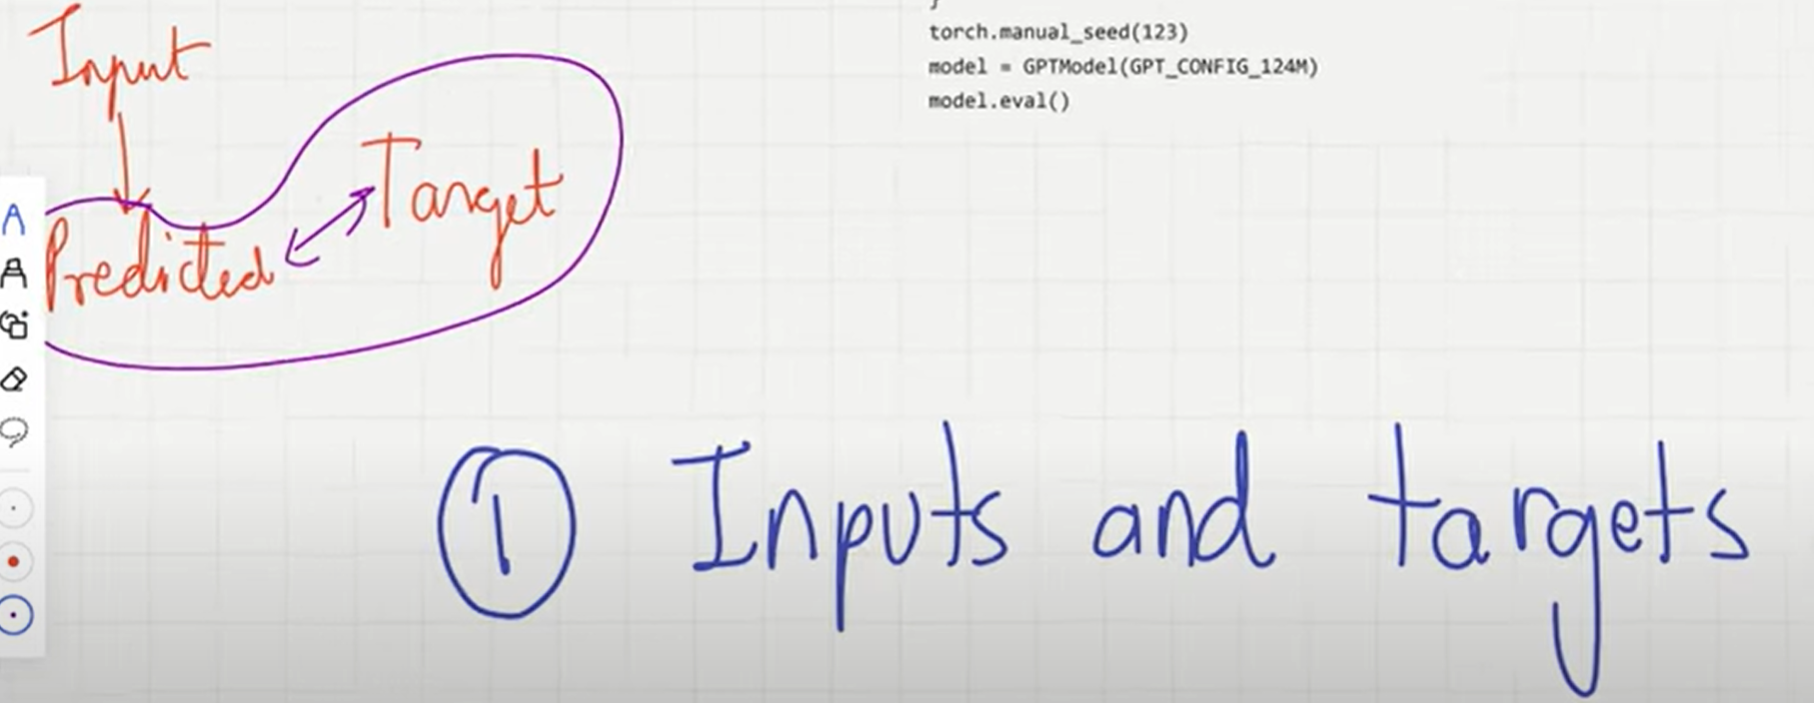 Input
Predicted
Target
}
torch.manual_seed(123)
model = GPTModel(GPT_CONFIG_124M)
model.eval()
1 Inputs and targets